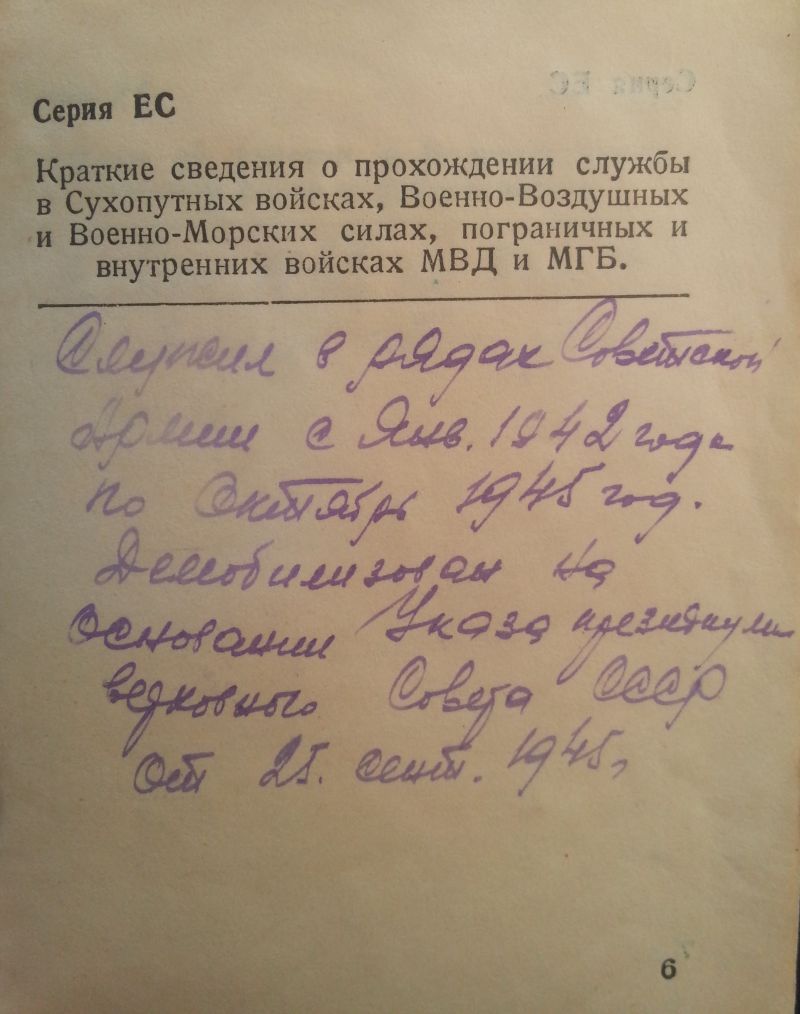 Серия ЕС
Краткие сведения о прохождении службы
в Сухопутных войсках, Военно-Воздушных
и Военно-Морских силах, пограничных и
внутренних войсках МВД и МГБ.
Служил в рядах Советской
Армии с Янв. 1942 года
по Октябрь 1945 год.
Демобилизован на
основании Указа президиума
верховного Совета СССР
от 25. сент. 1945г
6